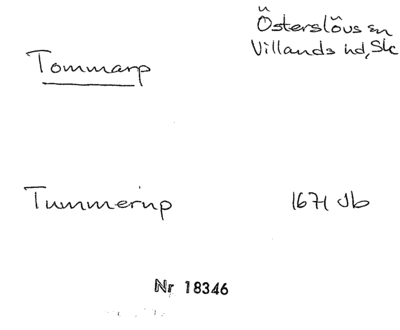 Österslövs sn
Villands hd, Sk
Tommarp
Tummerup 1671 Jb
Nr 18346